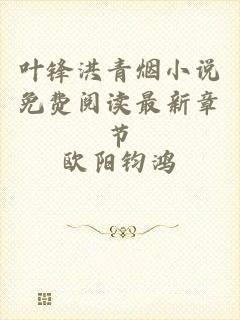 叶锋洪青烟小说
免费阅读最新章
节
欧阳钧鸿